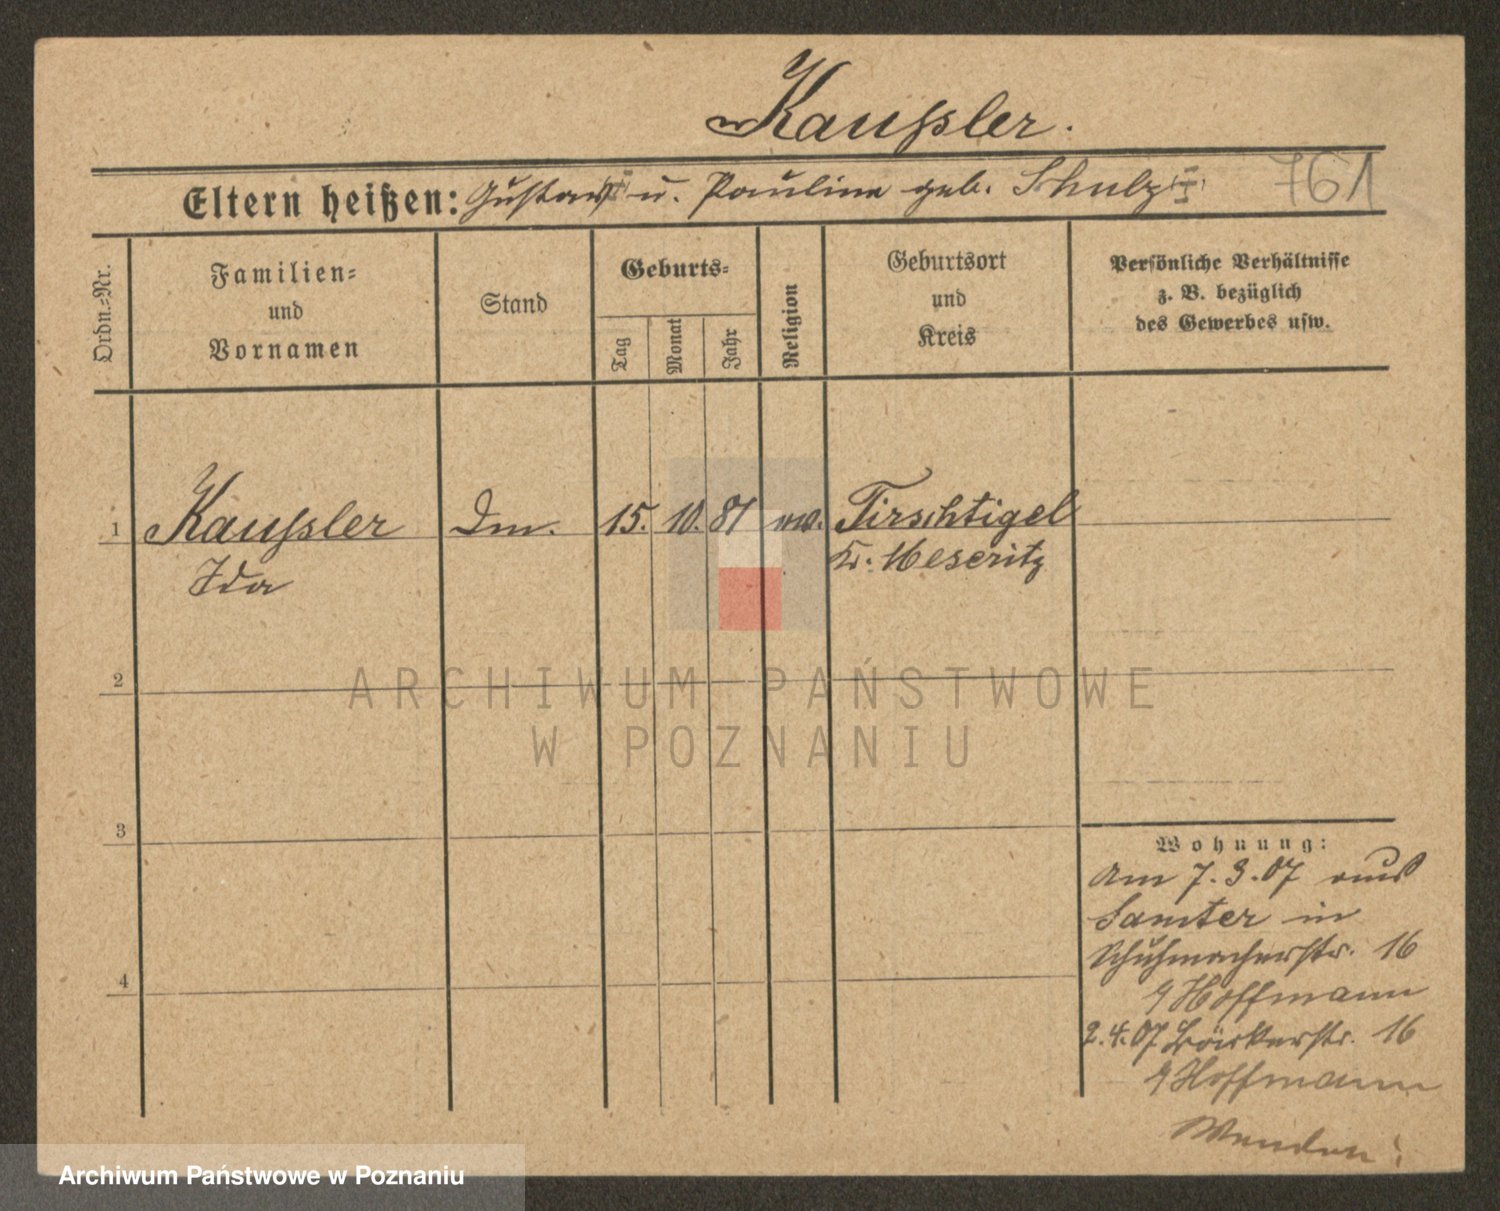 Kaußler.
Eltern heißen: Gustav u. Pauline geb. Schulz
761
Ordn.-Nr.
Familien-
und
Vornamen
Stand
Geburts-
Tag
Monat
Jahr
Religion
Geburtsort
und
Kreis
Persönliche Verhältnisse
z. B. bezüglich
des Gewerbes usw.
1 Kaußler 15. 10. 81 Tirschtigel
Ida Kr. Meseritz
2
ARCHIWUM PAŃSTWOWE
W POZNANIU
3
Wohnung:
Am 7.3.07 aus
Samter in
Schuhmacherstr. 16
Hoffmann
4
2.4.07 Bäckerstr. 16
Hoffmann
Wenden!
Archiwum Państwowe w Poznaniu